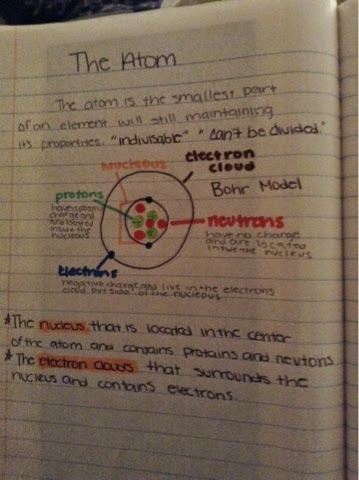 The Atom
The atom is the smallest part
of an element will still maintaining
its properties. "indivisable" "can't be divided"
Nucleous
electron
cloud
Bohr Model
protons
have a positive
charge and
are located
inside the
nucleous
neutrons
have no charge
and are located
inside the nucleus
Electrons
negative charge and live in the electrons
cloud outside of the nucleous
*The nucleus that is located in the center
of the atom and contains protains and neutons
*The electron clouds that surrounds the
nucleus and contains electrons.